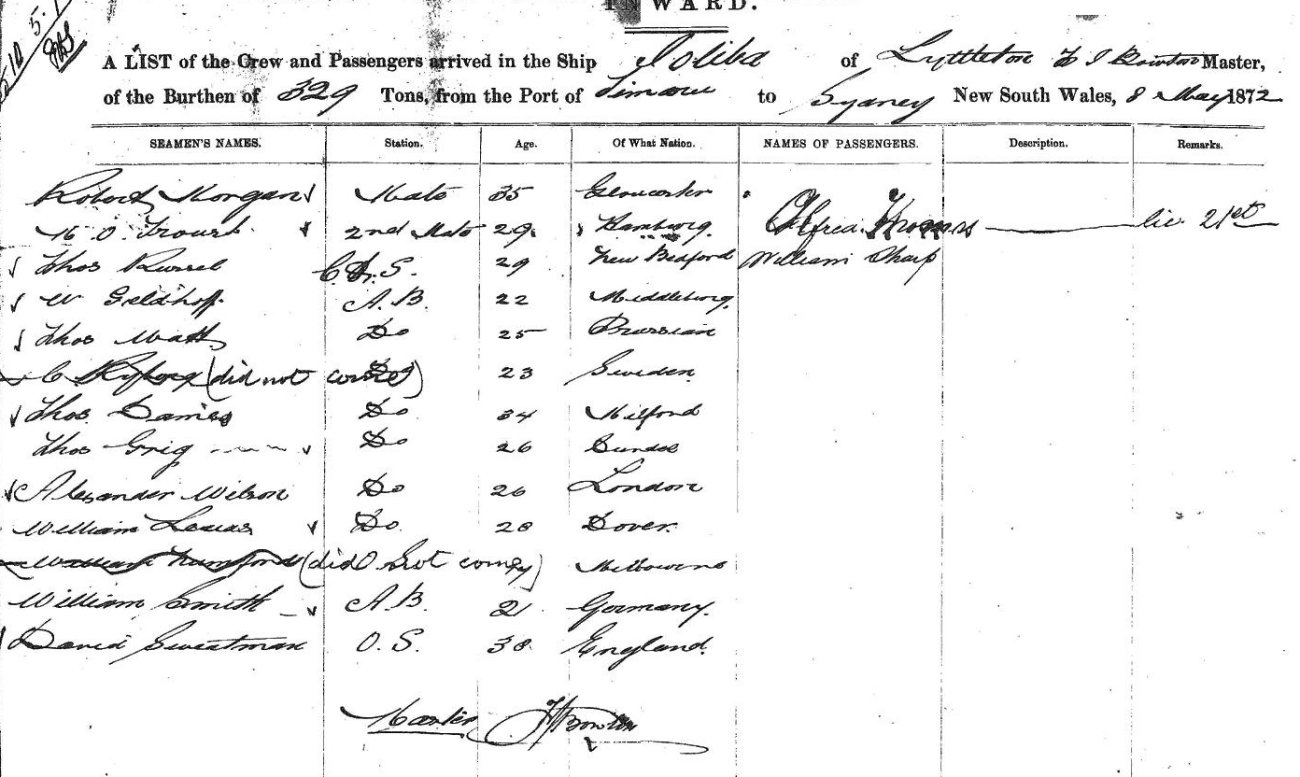 INWARD.
A LIST of the Crew and Passengers arrived in the Ship Joliba of Lyttleton Master,
of the Burthen of 329 Tons, from the Port of Timaru to Sydney New South Wales, 8 May 1872
SEAMEN'S NAMES. Station. Age. Of What Nation. NAMES OF PASSENGERS. Description. Remarks.
Robert Morgan Mate 35 Gloucester Alfred Thomas
2nd Mate 29 Hamburg 21st
Thos S. 29 New Bedford William Sharp
W Geldhoff A.B. 22 Middleburg
Thos Watts Do 25 Prussian
C (did not come) Do 23 Sweden
Thos Davies Do 34 Milford
Thos Grig Do 26 Dundee
Alexander Wilson Do 26 London
William Lewis Do 28 Dover
William (did not come) Melbourne
William Smith A.B. 21 Germany
David Sweatman O.S. 38 England
Master